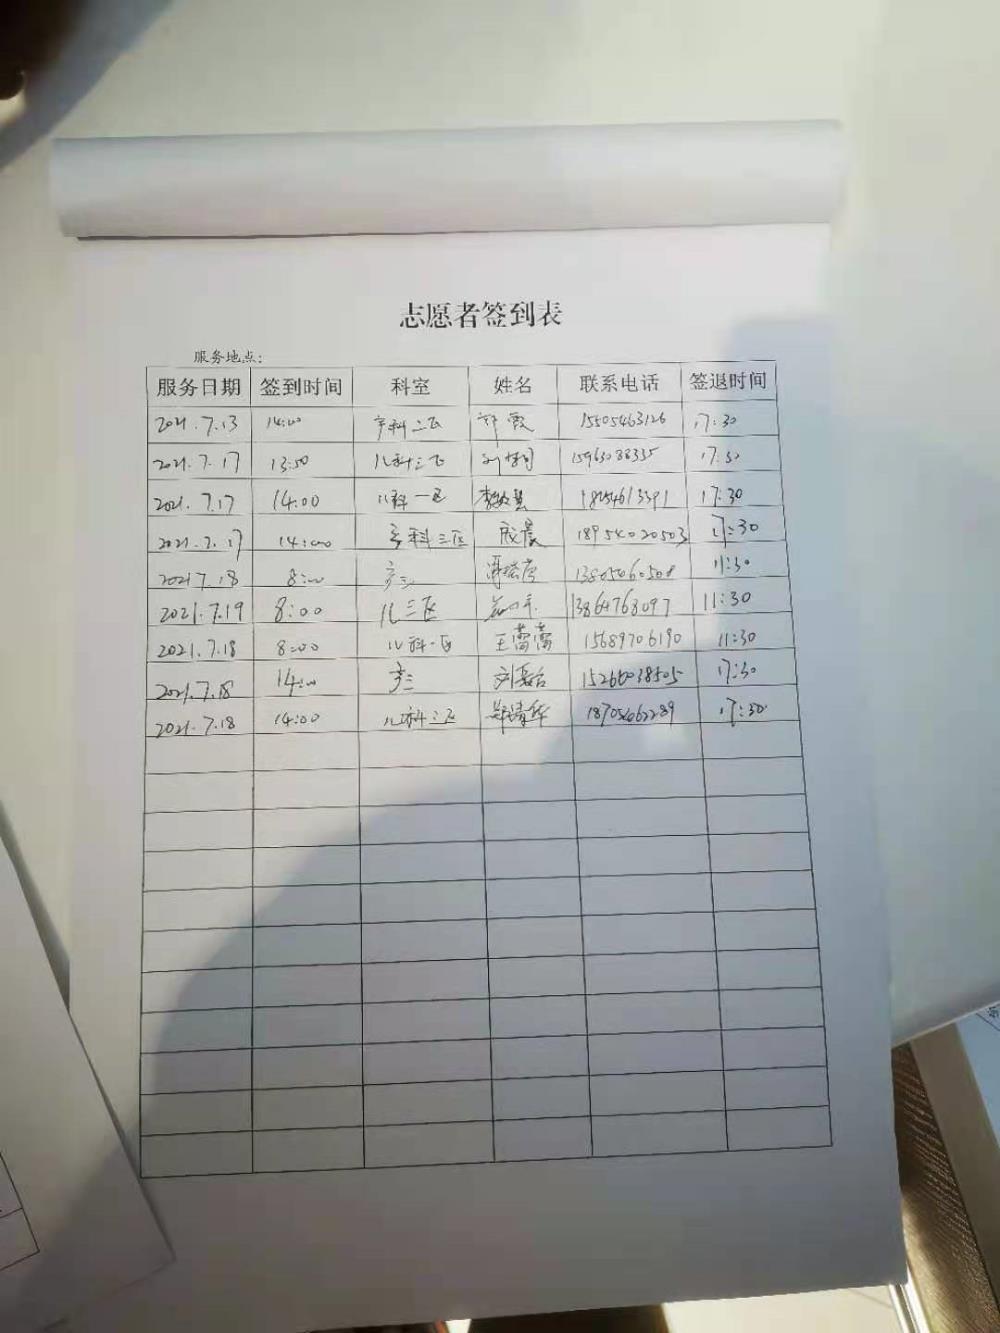 志愿者签到表
服务地点:
服务日期 签到时间 科室 姓名 联系电话 签退时间
2021.7.13 14:00 产科二区 霞 15505463126 17:30
2021.7.17 13:50 儿科三区 17:30
2021.7.17 14:00 儿科一区 17:30
2021.7.17 14:00 产科三区 成晨 18954020503 17:30
2021.7.18 8:00 产三 13805060508 11:30
2021.7.19 8:00 儿三区 13864768097 11:30
2021.7.18 8:00 儿科一区 王蕾蕾 15689706190 11:30
2021.7.18 14:00 产三 15266038505 17:30
2021.7.18 14:00 儿科二区 郑清华 18705462289 17:30